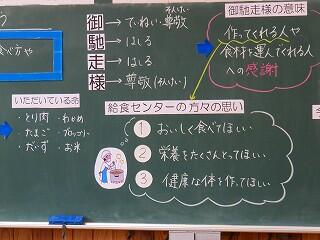 う
べ方や
御 → ていねい・尊敬
そんけい
馳 → はしる
走 → はしる
様 → 尊敬(そんけい)
御馳走様の意味
作ってくれる人や
食材を運んでくれる人
への感謝
いただいている命
・とり肉 ・わかめ
・たまご ・ブロッコリー
・だいず ・お米
給食センターの方々の思い
1 おいしく食べてほしい
2 栄養をたくさんとってほしい
3 健康な体を作ってほしい